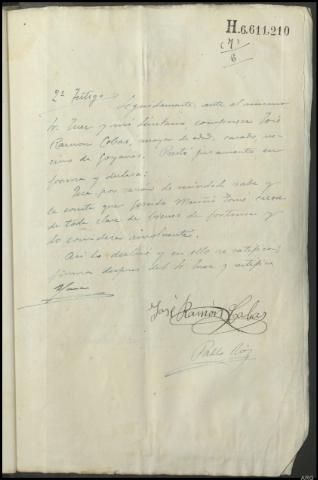 H.6.611.210
(7)
6
2º Testigo Seguidamente, ante el mismo
Sr. Juez y mi Secretario comparece José
Ramón Cobas, mayor de edad, casado, ve-
cino de Goyanes. Prestó juramento en
forma y declara:
Que por razón de vecindad sabe y
le consta que Mariño Tomé carece
de toda clase de bienes de fortuna y
lo considera insolvente.
Así lo declaró y en ello se ratifica;
firma después del Sr. Juez y certifico
José Ramón Cobas
Pablo